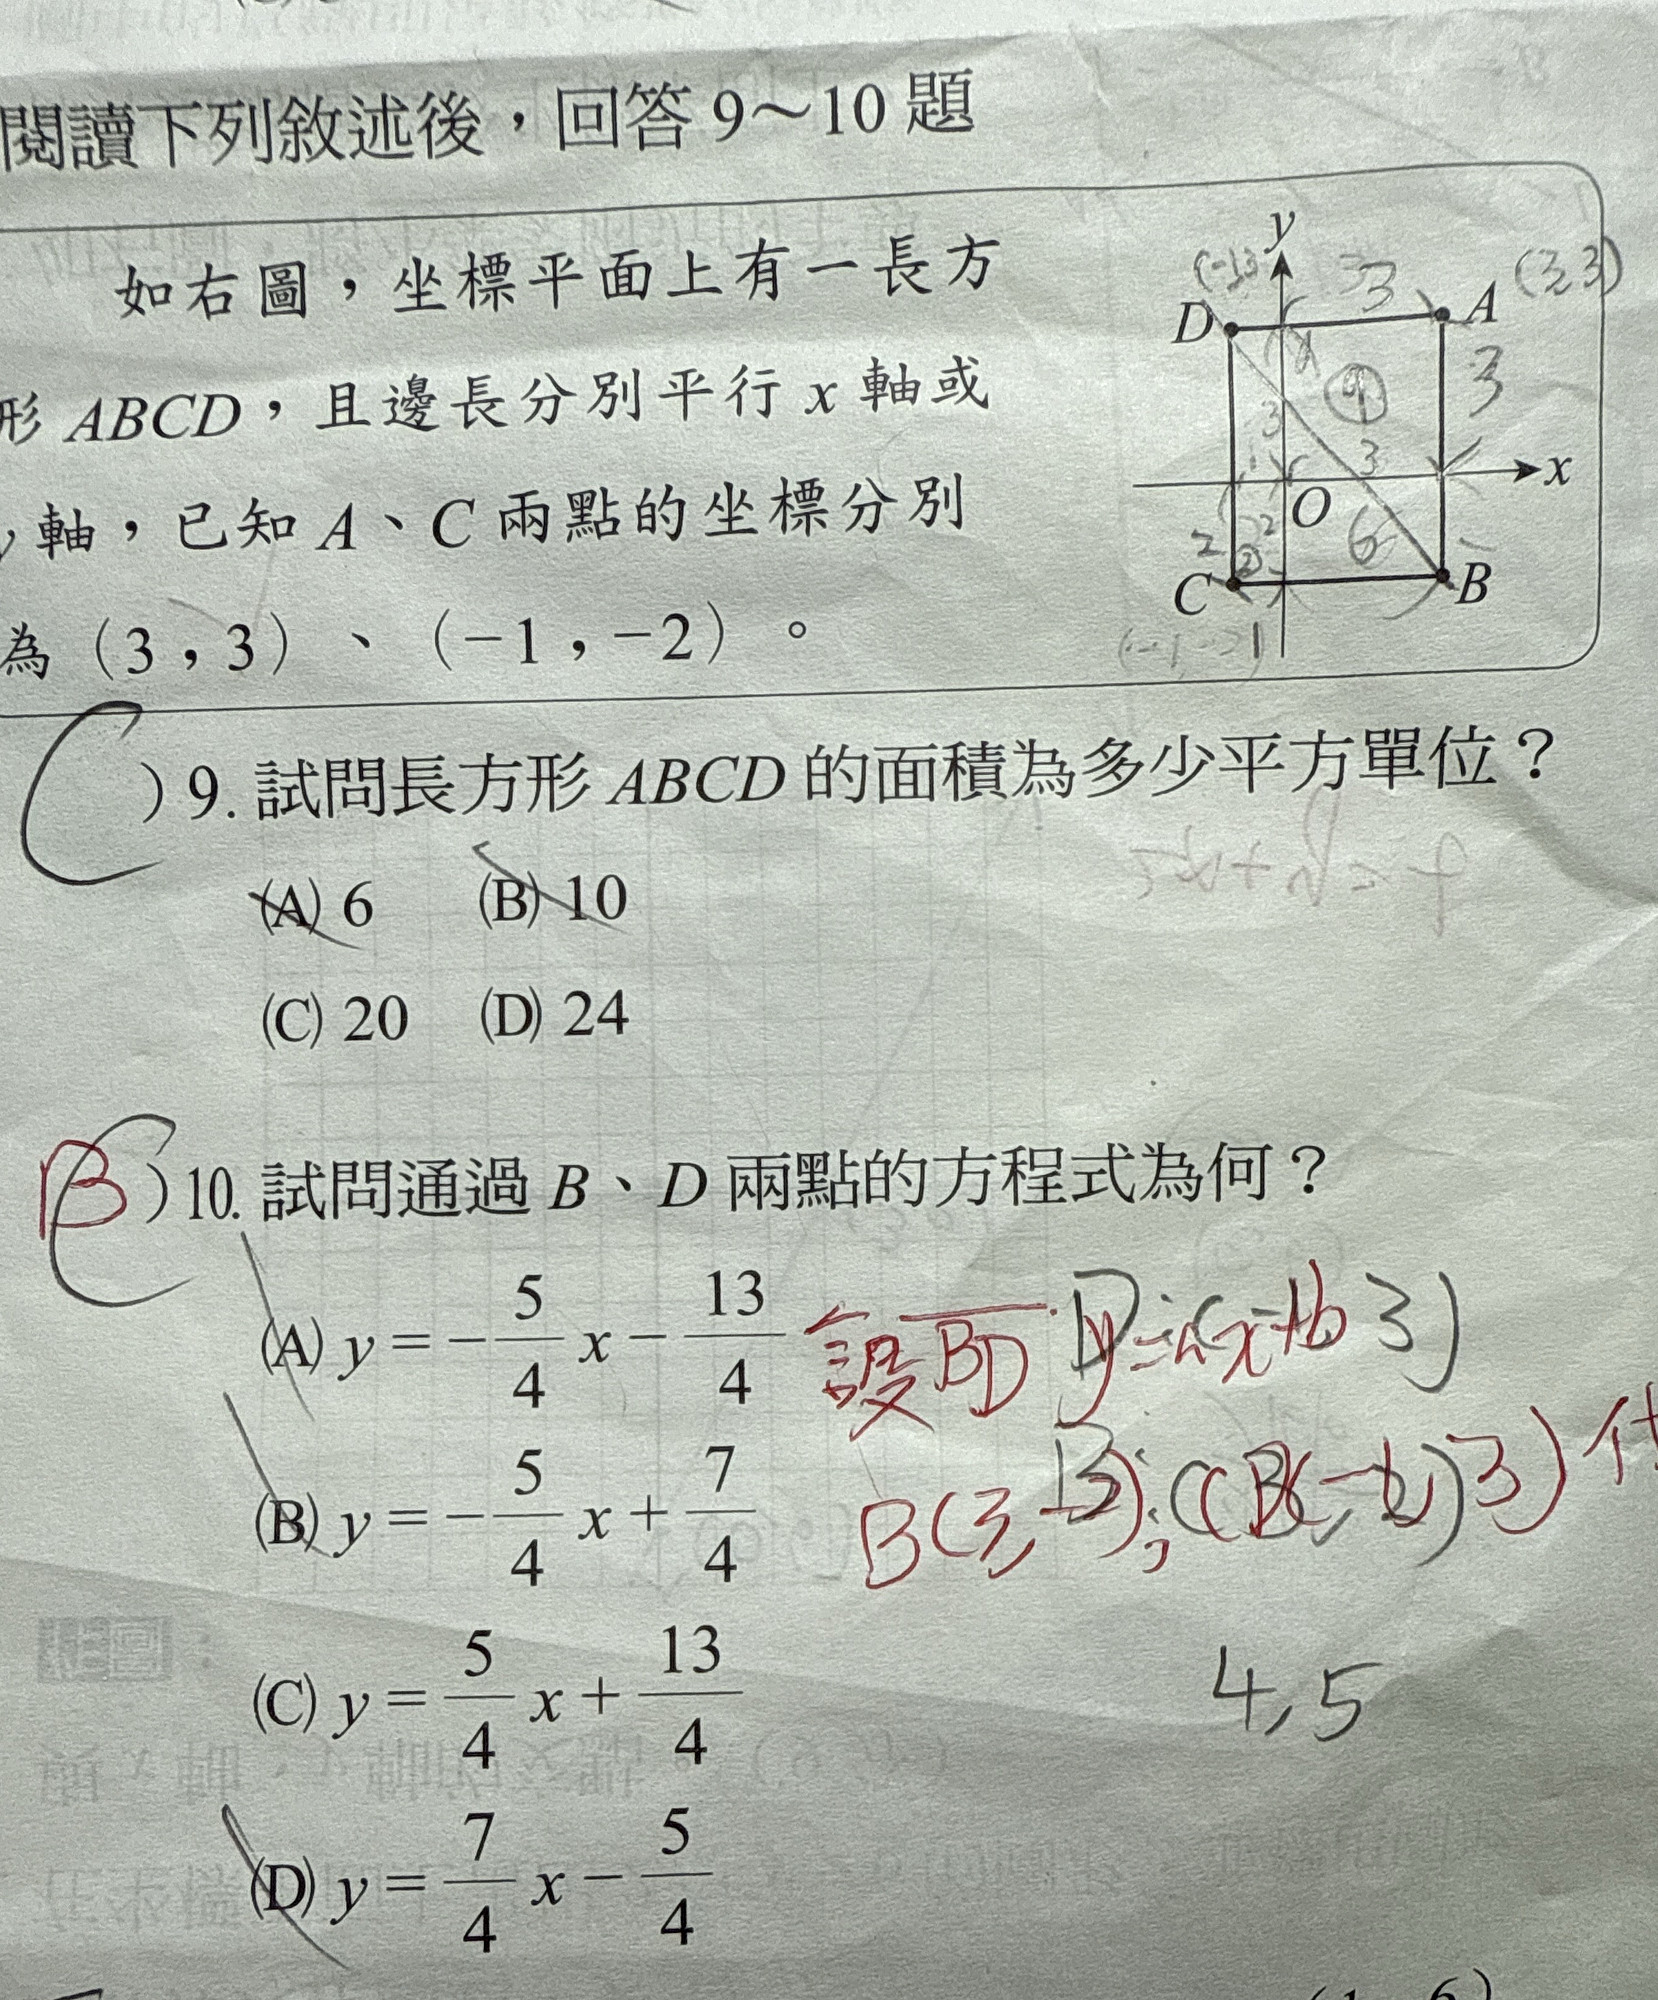 閱讀下列敘述後，回答 9～10 題
如右圖，坐標平面上有一長方
形 ABCD，且邊長分別平行 x 軸或
y 軸，已知 A、C 兩點的坐標分別
為（3，3）、（－1，－2）。
y
(-1,3
3
(3,3)
D
A
3
3
4
3
x
O
2
2
6
C
B
C )9. 試問長方形 ABCD 的面積為多少平方單位？
(A) 6 (B) 10
(C) 20 (D) 24
B )10. 試問通過 B、D 兩點的方程式為何？
(A) y＝－5/4 x－13/4
設 BD y=ax+b
(B) y＝－5/4 x＋7/4
(C) y＝5/4 x＋13/4
4,5
(D) y＝7/4 x－5/4